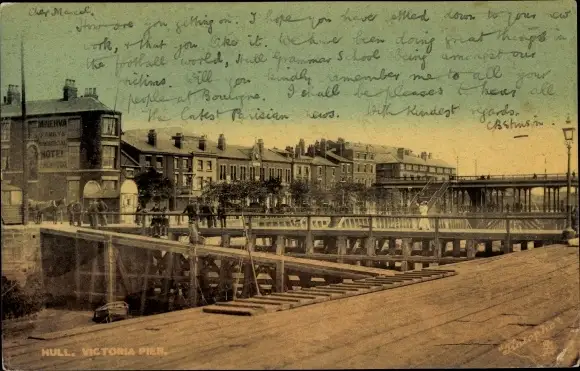 Cher Marcel,
How are you getting on. I hope you have settled down to your new
work, & that you like it. We have been doing great things in
the football world, Hull Grammar School being amongst our
victims. Will you kindly remember me to all your
people at Boulogne. I shall be pleased to hear all
the latest Parisian news. With kindest regards.
MINERVA
HOTEL
HULL. VICTORIA PIER.